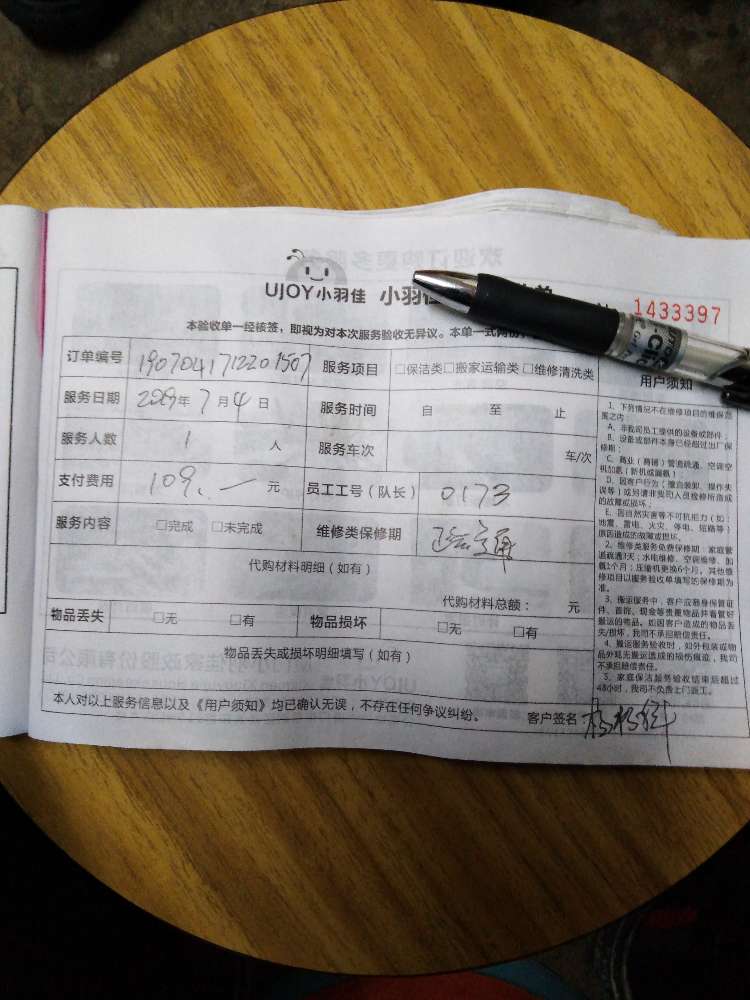 UJOY小羽佳 小羽佳
1433397
本验收单一经核签，即视为对本次服务验收无异议。本单一式两份，
订单编号 1907041712201507 服务项目 □保洁类□搬家运输类 □维修清洗类
服务日期 2019年 7月 4日 服务时间 自 至 止
服务人数 1 人 服务车次 车/次
支付费用 109.一 元 员工工号（队长） 0173
服务内容 □完成 □未完成 维修类保修期
代购材料明细（如有）
代购材料总额： 元
物品丢失 □无 □有 物品损坏 □无 □有
物品丢失或损坏明细填写（如有）
本人对以上服务信息以及《用户须知》均已确认无误，不存在任何争议纠纷。 客户签名
用户须知
1、下列情况不在维修项目的维保范
围之内：
A、非我司员工提供的设备或部件；
B、设备或部件本身已经超过出厂保
修期；
C、商业（商铺）管道疏通、空调空
机加氟（新机或漏氟）；
D、因客户行为（擅自装卸、操作失
误等）或另请非我司人员检修所造成
的故障或损坏；
E、因自然灾害等不可抗拒力（如：
地震、雷电、火灾、停电、短路等）
原因造成的故障或损坏。
2、维修类服务免费保修期：家庭管
道疏通3天；水电维修、空调维修、加
氟1个月；压缩机更换6个月，其他维
修项目以服务验收单填写的保修期为
准。
3、搬运服务中，客户应随身保管证
件、首饰、现金等贵重物品并看管好
搬运的物品。如因客户造成的物品丢
失/损坏，我司不承担赔偿责任。
4、搬运服务验收时，如外包装或物
品外观无搬运造成的损伤痕迹，我司
不承担赔偿责任。
5、家庭保洁服务验收结束后超过
48小时，我司不免费上门返工。